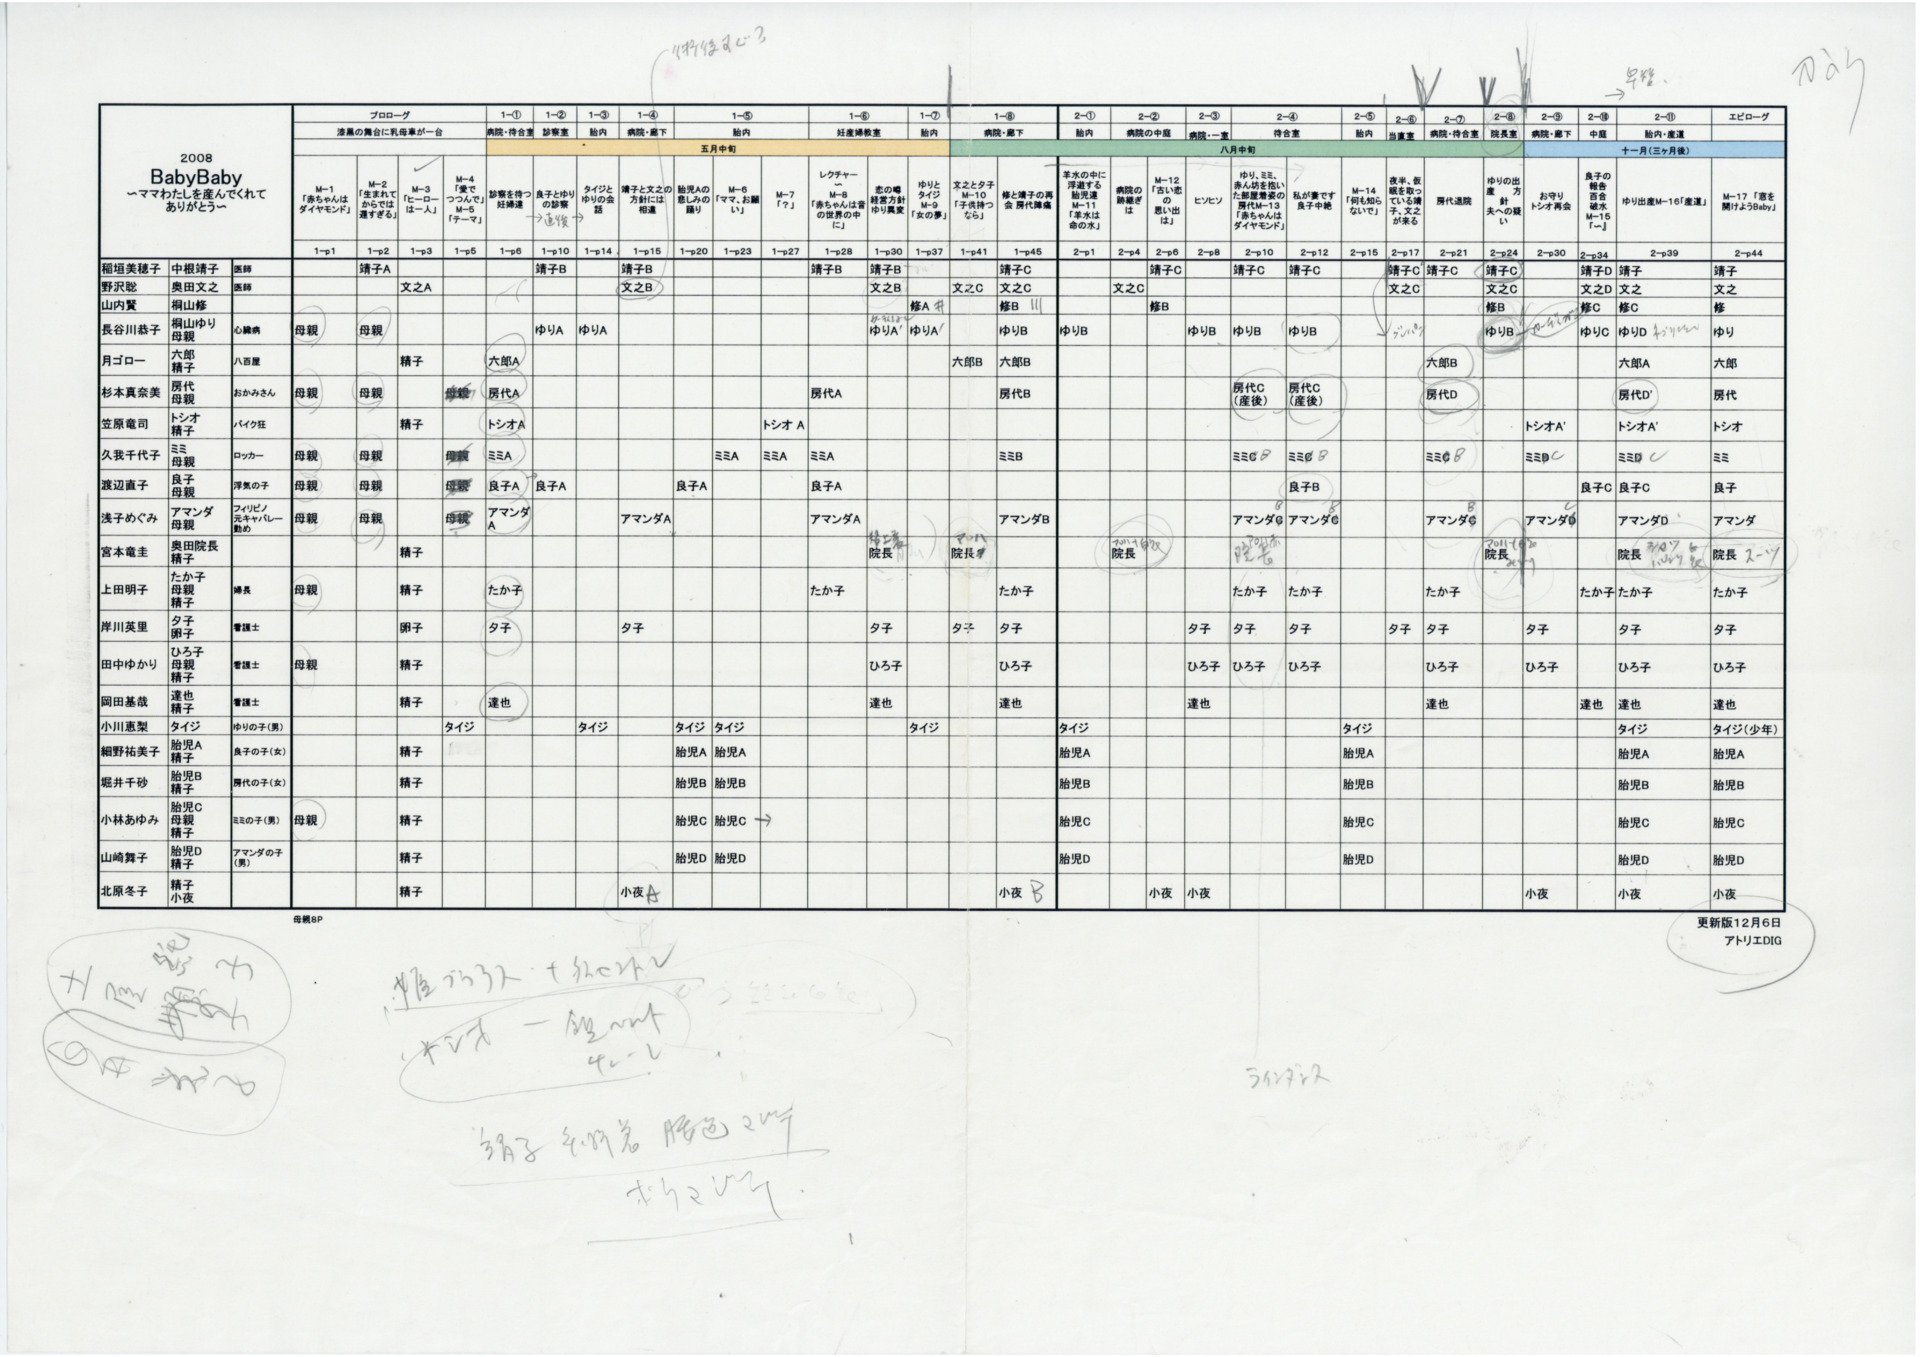 2008
BabyBaby
～ママわたしを産んでくれて
ありがとう～
プロローグ 1-① 1-② 1-③ 1-④ 1-⑤ 1-⑥ 1-⑦ 1-⑧ 2-① 2-② 2-③ 2-④ 2-⑤ 2-⑥ 2-⑦ 2-⑧ 2-⑨ 2-⑩ 2-⑪ エピローグ
漆黒の舞台に乳母車が一台 病院・待合室 診察室 胎内 病院・廊下 胎内 妊産婦教室 胎内 病院・廊下 胎内 病院の中庭 病院・一室 待合室 胎内 当直室 病院・待合室 院長室 病院・廊下 中庭 胎内・産道
五月中旬 八月中旬 十一月(三ヶ月後)
M-1「赤ちゃんはダイヤモンド」
M-2「生まれてからでは遅すぎる」
M-3「ヒーローは一人」
M-4「愛でつつんで」M-5「テーマ」
診察を待つ妊婦達
良子とゆりの診察
タイジとゆりの会話
靖子と文之の方針には相違
胎児Aの悲しみの踊り
M-6「ママ、お願い」
M-7「？」
レクチャー～M-8「赤ちゃんは音の世界の中に」
恋の噂 経営方針 ゆり異変
ゆりとタイジ M-9「女の夢」
文之と夕子 M-10「子供持つなら」
修と靖子の再会 房代陣痛
羊水の中に浮遊する胎児達 M-11「羊水は命の水」
病院の跡継ぎは
M-12「古い恋の思い出は」
ヒソヒソ
ゆり、ミミ、赤ん坊を抱いた部屋着姿の房代M-13「赤ちゃんはダイヤモンド」
私が妻です 良子中絶
M-14「何も知らないで」
夜半、仮眠を取っている靖子、文之が来る
房代退院
ゆりの出産 方針 夫への疑い
お守り トシオ再会
良子の報告 百合破水 M-15「～」
ゆり出産M-16「産道」
M-17「窓を開けようBaby」
1-p1 1-p2 1-p3 1-p5 1-p6 1-p10 1-p14 1-p15 1-p20 1-p23 1-p27 1-p28 1-p30 1-p37 1-p41 1-p45 2-p1 2-p4 2-p6 2-p8 2-p10 2-p12 2-p15 2-p17 2-p21 2-p24 2-p30 2-p34 2-p39 2-p44
稲垣美穂子 中根靖子 医師 靖子A 靖子B 靖子B 靖子B 靖子B 靖子C 靖子C 靖子C 靖子C 靖子C 靖子C 靖子C 靖子D 靖子 靖子
野沢聡 奥田文之 医師 文之A 文之B 文之B 文之C 文之C 文之C 文之C 文之C 文之D 文之 文之
山内賢 桐山修 修A 修B 修B 修B 修C 修C 修
長谷川恭子 桐山ゆり 母親 心臓病 母親 母親 ゆりA ゆりA ゆりA' ゆりA' ゆりB ゆりB ゆりB ゆりB ゆりB ゆりB ゆりC ゆりD ゆり
月ゴロー 六郎 精子 八百屋 精子 六郎A 六郎B 六郎B 六郎B 六郎A 六郎
杉本真奈美 房代 母親 おかみさん 母親 母親 母親 房代A 房代A 房代B 房代C(産後) 房代C(産後) 房代D 房代D' 房代
笠原竜司 トシオ 精子 バイク狂 精子 トシオA トシオ A トシオA' トシオA' トシオ
久我千代子 ミミ 母親 ロッカー 母親 母親 母親 ミミA ミミA ミミA ミミA ミミB ミミC B ミミC B ミミC B ミミD C ミミD C ミミ
渡辺直子 良子 母親 浮気の子 母親 母親 母親 良子A 良子A 良子A 良子A 良子B 良子C 良子C 良子
浅子めぐみ アマンダ 母親 フィリピノ元キャバレー勤め 母親 母親 母親 アマンダA アマンダA アマンダA アマンダB アマンダC B アマンダC B アマンダC B アマンダD C アマンダD アマンダ
宮本竜圭 奥田院長 精子 精子 院長 院長 院長 院長 院長 院長 院長 スーツ
上田明子 たか子 母親 精子 婦長 母親 精子 たか子 たか子 たか子 たか子 たか子 たか子 たか子 たか子 たか子
岸川英里 夕子 卵子 看護士 卵子 夕子 夕子 夕子 夕子 夕子 夕子 夕子 夕子 夕子 夕子 夕子 夕子 夕子
田中ゆかり ひろ子 母親 精子 看護士 母親 精子 ひろ子 ひろ子 ひろ子 ひろ子 ひろ子 ひろ子 ひろ子 ひろ子 ひろ子
岡田基哉 達也 精子 看護士 精子 達也 達也 達也 達也 達也 達也 達也 達也
小川恵梨 タイジ ゆりの子(男) タイジ タイジ タイジ タイジ タイジ タイジ タイジ タイジ タイジ(少年)
細野祐美子 胎児A 精子 良子の子(女) 精子 胎児A 胎児A 胎児A 胎児A 胎児A 胎児A
堀井千砂 胎児B 精子 房代の子(女) 精子 胎児B 胎児B 胎児B 胎児B 胎児B 胎児B
小林あゆみ 胎児C 母親 精子 ミミの子(男) 母親 精子 胎児C 胎児C → 胎児C 胎児C 胎児C 胎児C
山崎舞子 胎児D 精子 アマンダの子(男) 精子 胎児D 胎児D 胎児D 胎児D 胎児D 胎児D
北原冬子 精子 小夜 精子 小夜A 小夜 B 小夜 小夜 小夜 小夜 小夜
母親8P
更新版12月6日
アトリエDIG
ラインダンス